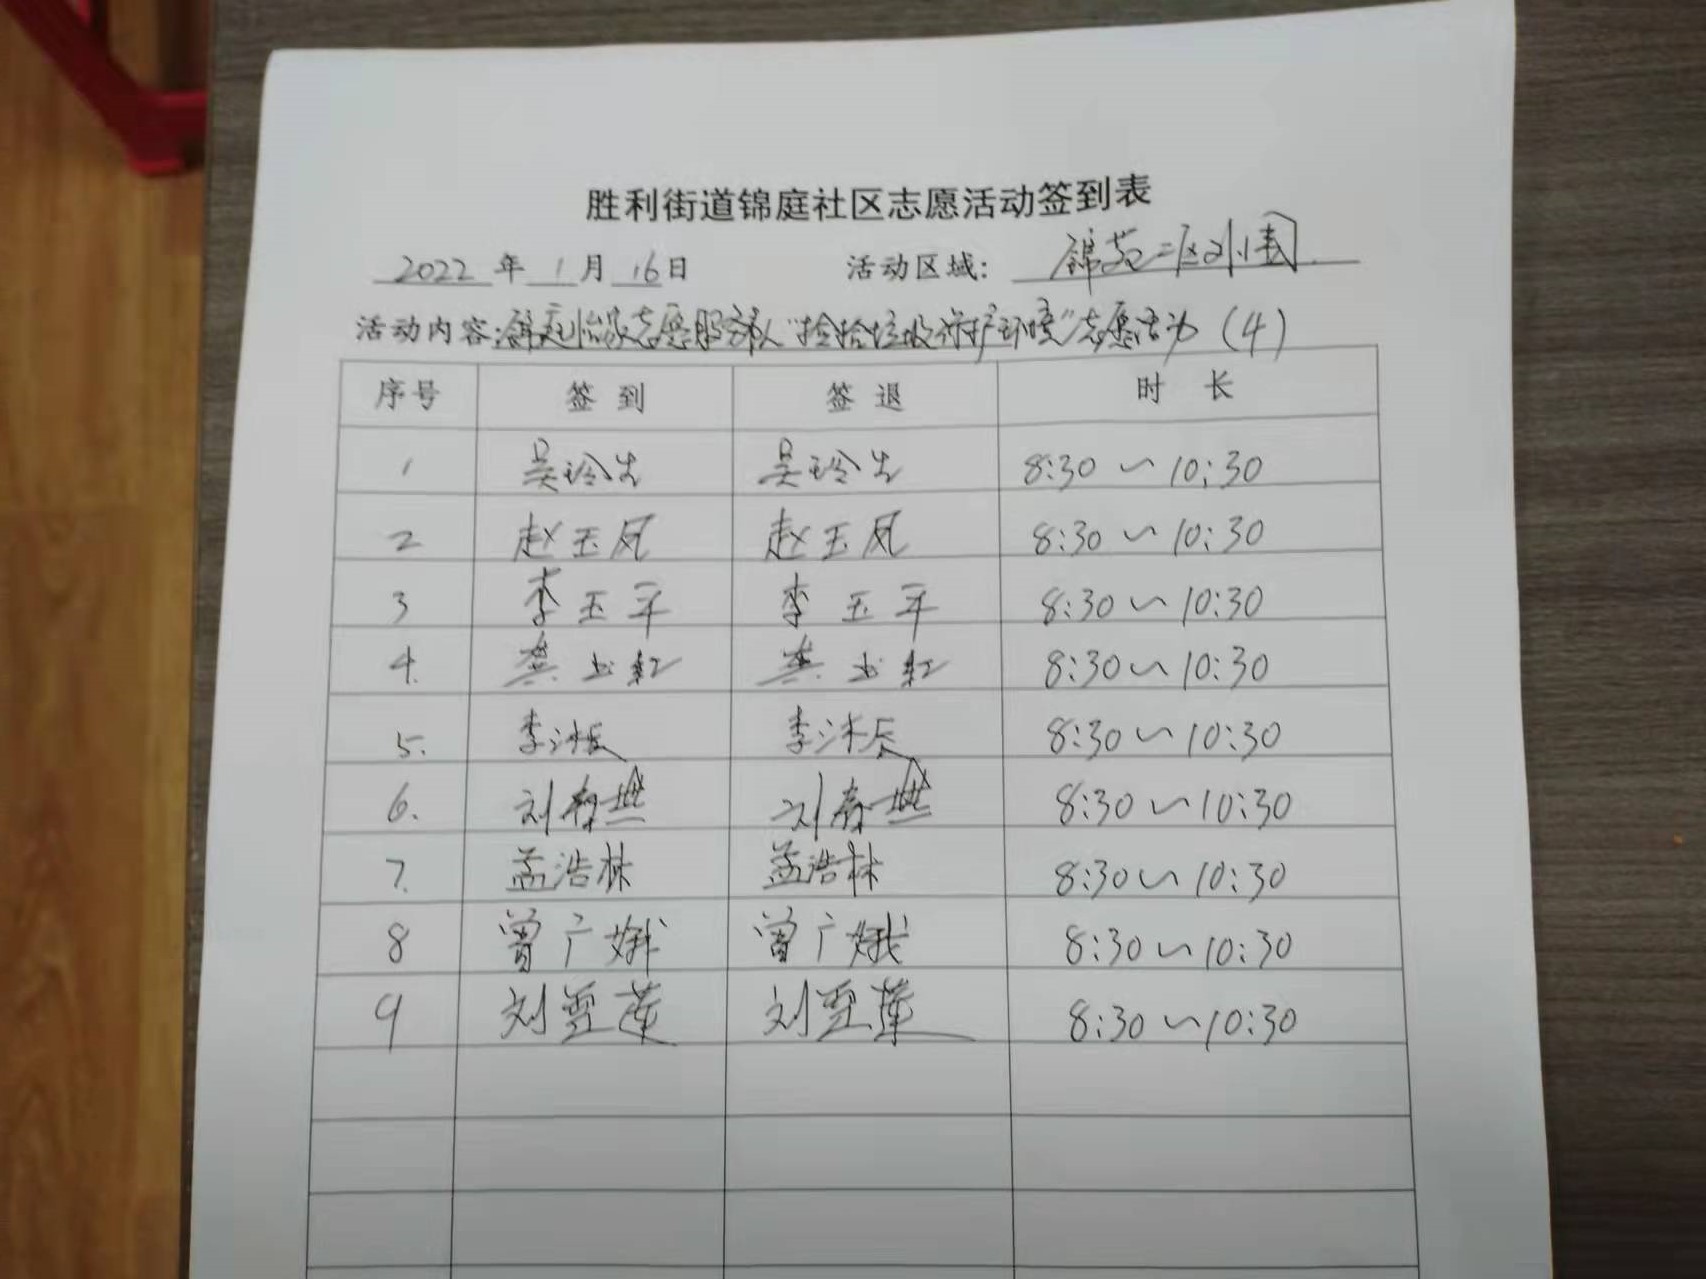 胜利街道锦庭社区志愿活动签到表
2022 年 1 月 16 日 活动区域: 锦苑二区小
活动内容: 锦庭怡家志愿服务队"捡拾垃圾 保护环境"志愿活动 (4)
序号 签到 签退 时长
1 吴玲 吴玲 8:30 ~ 10:30
2 赵玉凤 赵玉凤 8:30 ~ 10:30
3 李玉平 李玉平 8:30 ~ 10:30
4. 龚玉红 龚玉红 8:30 ~ 10:30
5. 李沐辰 李沐辰 8:30 ~ 10:30
6. 刘春 刘春 8:30 ~ 10:30
7. 孟浩林 孟浩林 8:30 ~ 10:30
8 曾广娥 曾广娥 8:30 ~ 10:30
9 刘雪莲 刘雪莲 8:30 ~ 10:30